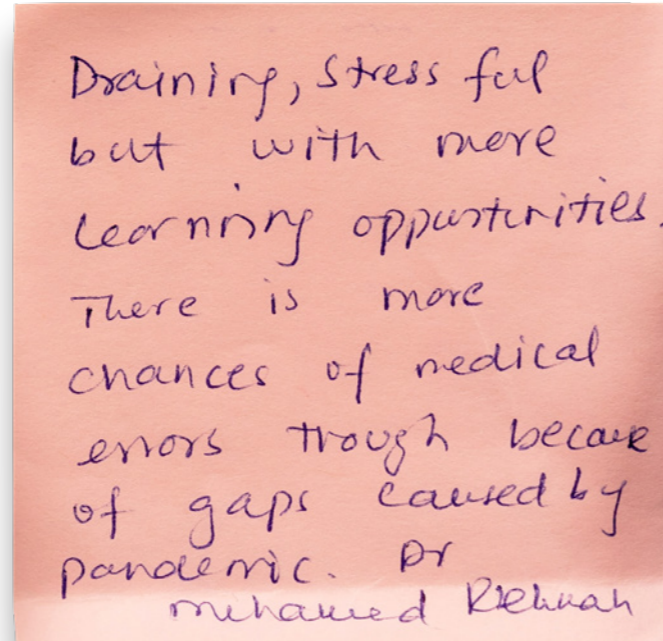 Draining, stress ful
but with more
learning opportunities.
There is more
chances of medical
errors trough because
of gaps caused by
pandemic. Dr
mohamed